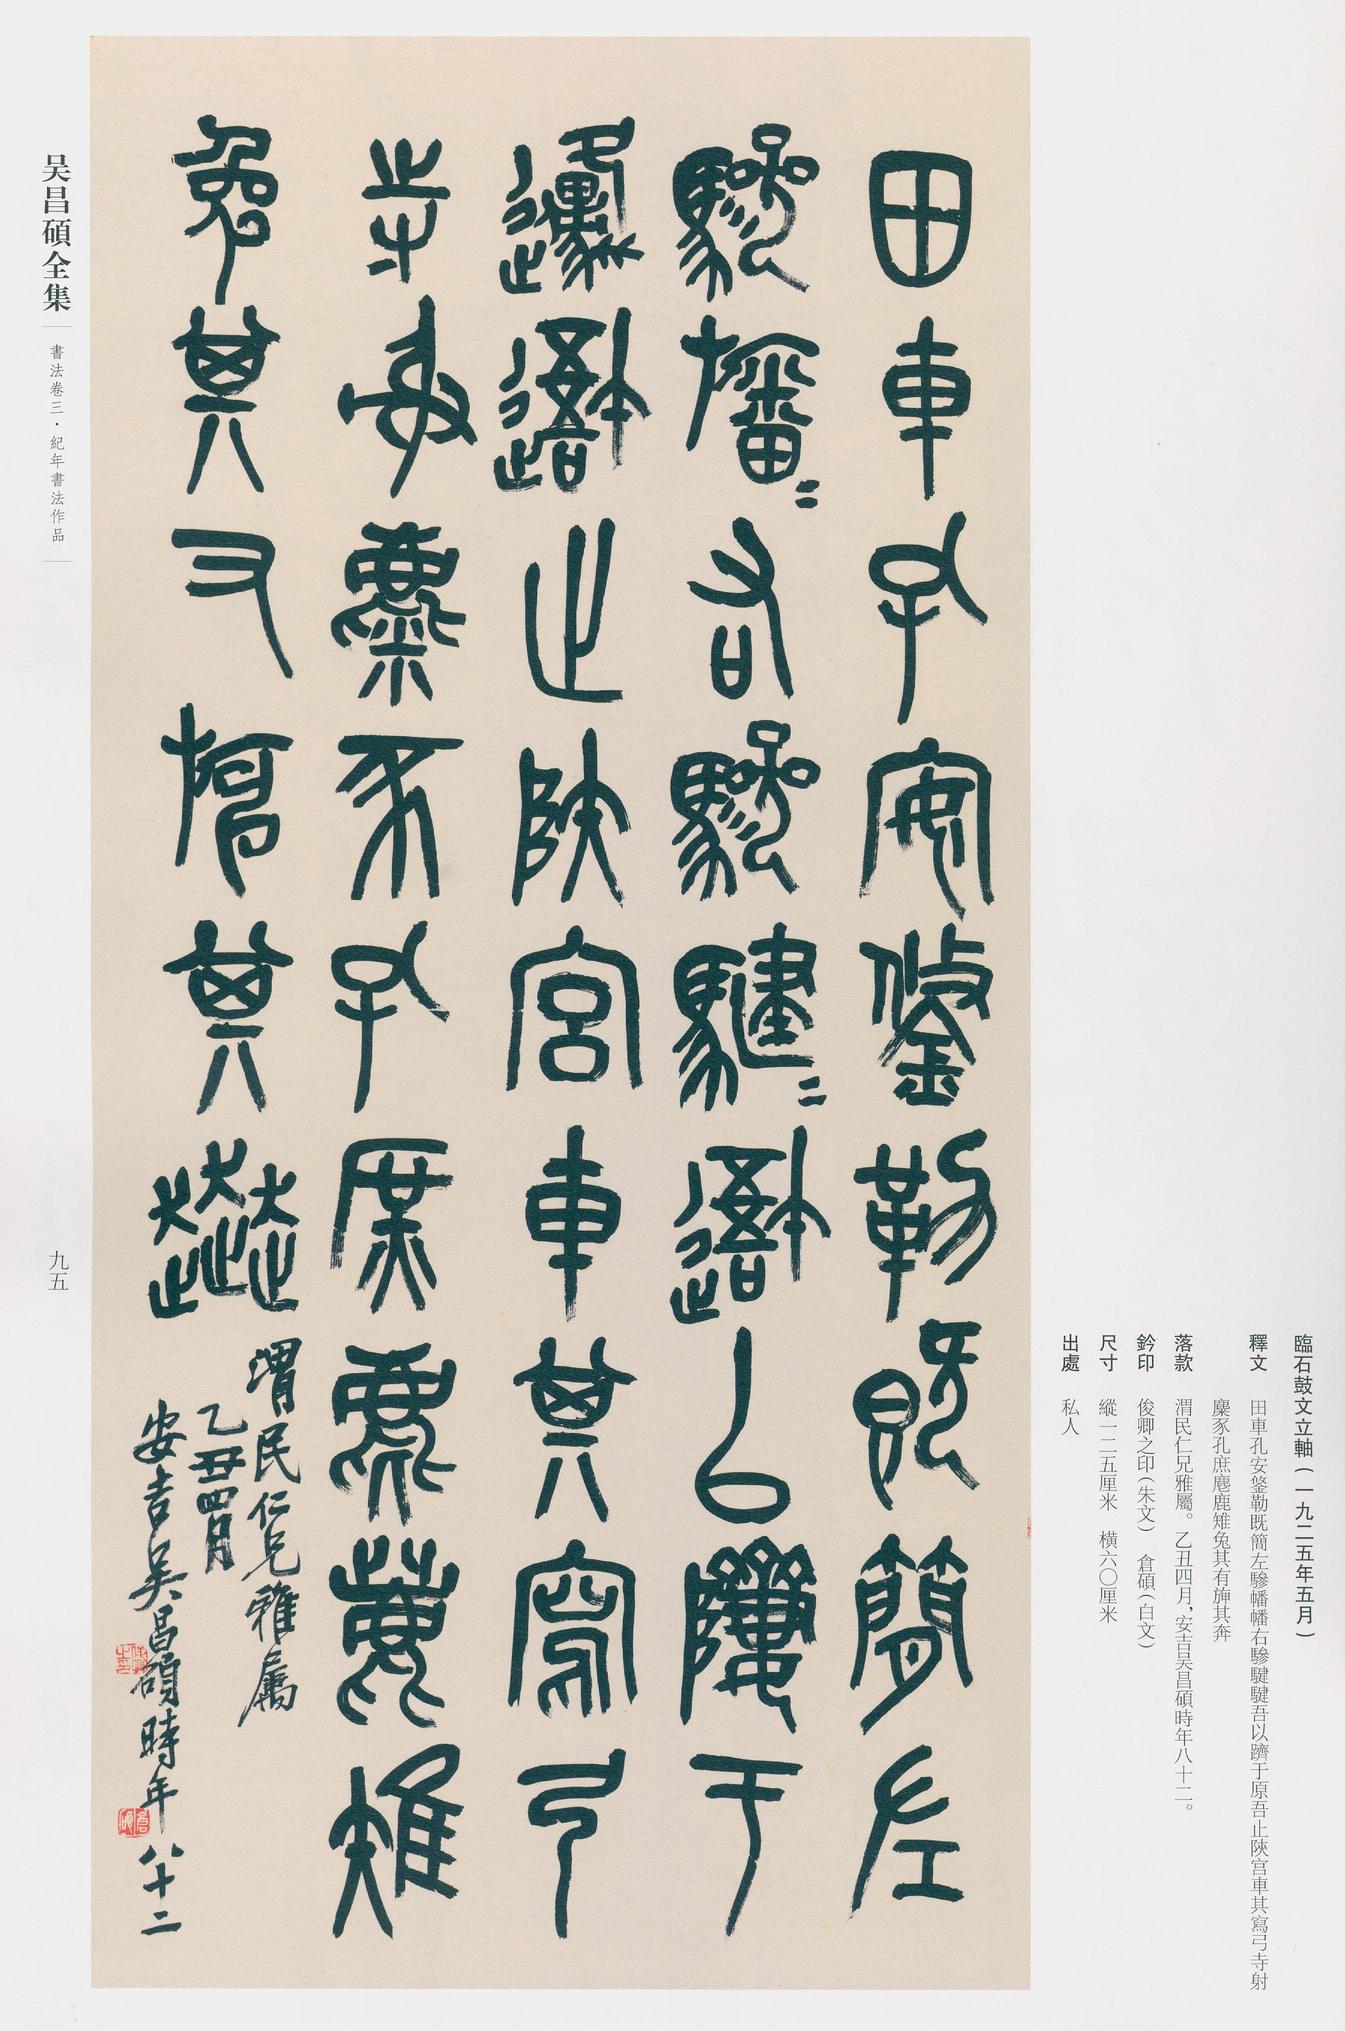 臨石鼓文立軸(一九二五年五月)
釋文 田車孔安鋚勒既簡左驂幡幡右驂騝騝吾以隮于原吾止陝宮車其寫弓寺射
麋豕孔庶麀鹿雉兔其有旆其奔
落款 渭民仁兄雅屬。乙丑四月,安吉吳昌碩時年八十二。
鈐印 俊卿之印(朱文) 倉碩(白文)
尺寸 縱一二五厘米 橫六〇厘米
出處 私人
田車孔安鋚勒既簡左
驂幡=右驂騝=避以隮于
邍避止陝宮車其寫弓
寺射麋豕孔庶麀鹿雉
兔其又旆其
渭民仁兄雅屬
乙丑四月
安吉吳昌碩時年八十二
俊卿之印
倉碩
吴昌碩全集
書法卷三·紀年書法作品
九五